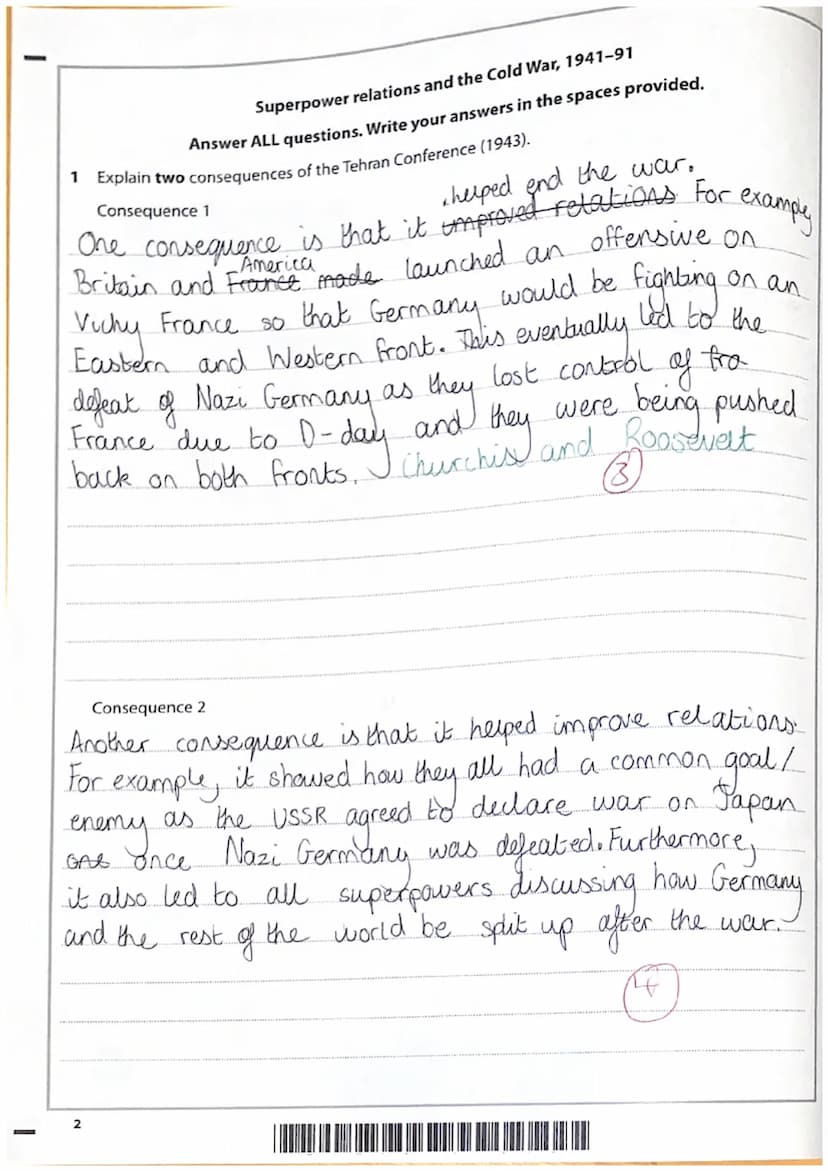 Superpower relations and the Cold War, 1941–91
Answer ALL questions. Write your answers in the spaces provided.
1 Explain two consequences of the Tehran Conference (1943).
Consequence 1
helped end the war.
One consequence is that it improved relations For example
America
Britain and France made launched an offensive on
Vichy France so that Germany would be fighting on an
Eastern and Western front. This eventually led to the
defeat of Nazi Germany as they lost control of fra
France due to D-day and they were being pushed
back on both fronts. Churchill and Roosevelt
3
Consequence 2
Another consequence is that it helped improve relations.
For example, it showed how they all had a common goal/
enemy as the USSR agreed to declare war on Japan
once Nazi Germany was defeated. Furthermore,
it also led to all superpowers discussing how Germany
and the rest of the world be split up after the war.
4
2